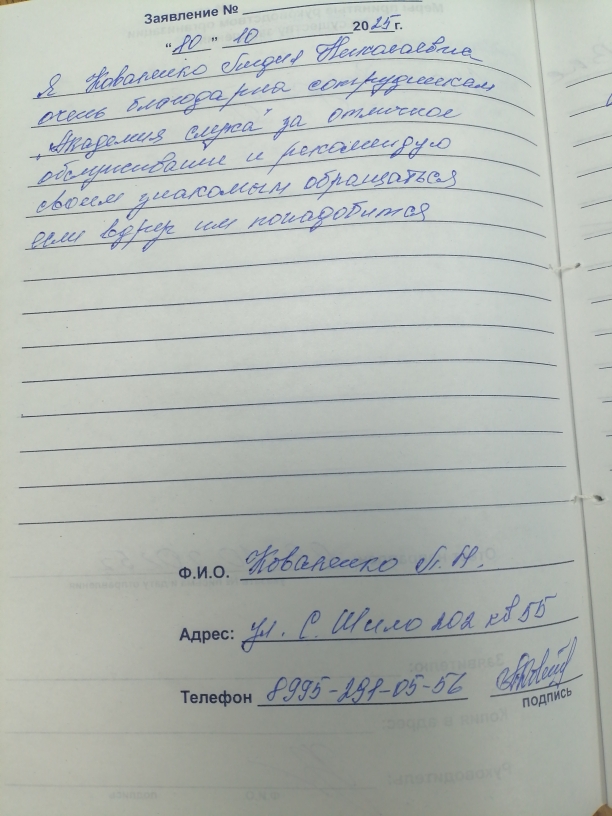 Заявление №
" 10 " 10 2025 г.
Я Коваленко Лидия Николаевна
очень благодарна сотрудникам
"Академия слуха" за отличное
обслуживание и рекомендую
своим знакомым обращаться
если вдруг им понадобится
Ф.И.О. Коваленко Л. Н.
Адрес: ул. С. Шило 202 кв 55
Телефон 8995-291-05-56
подпись